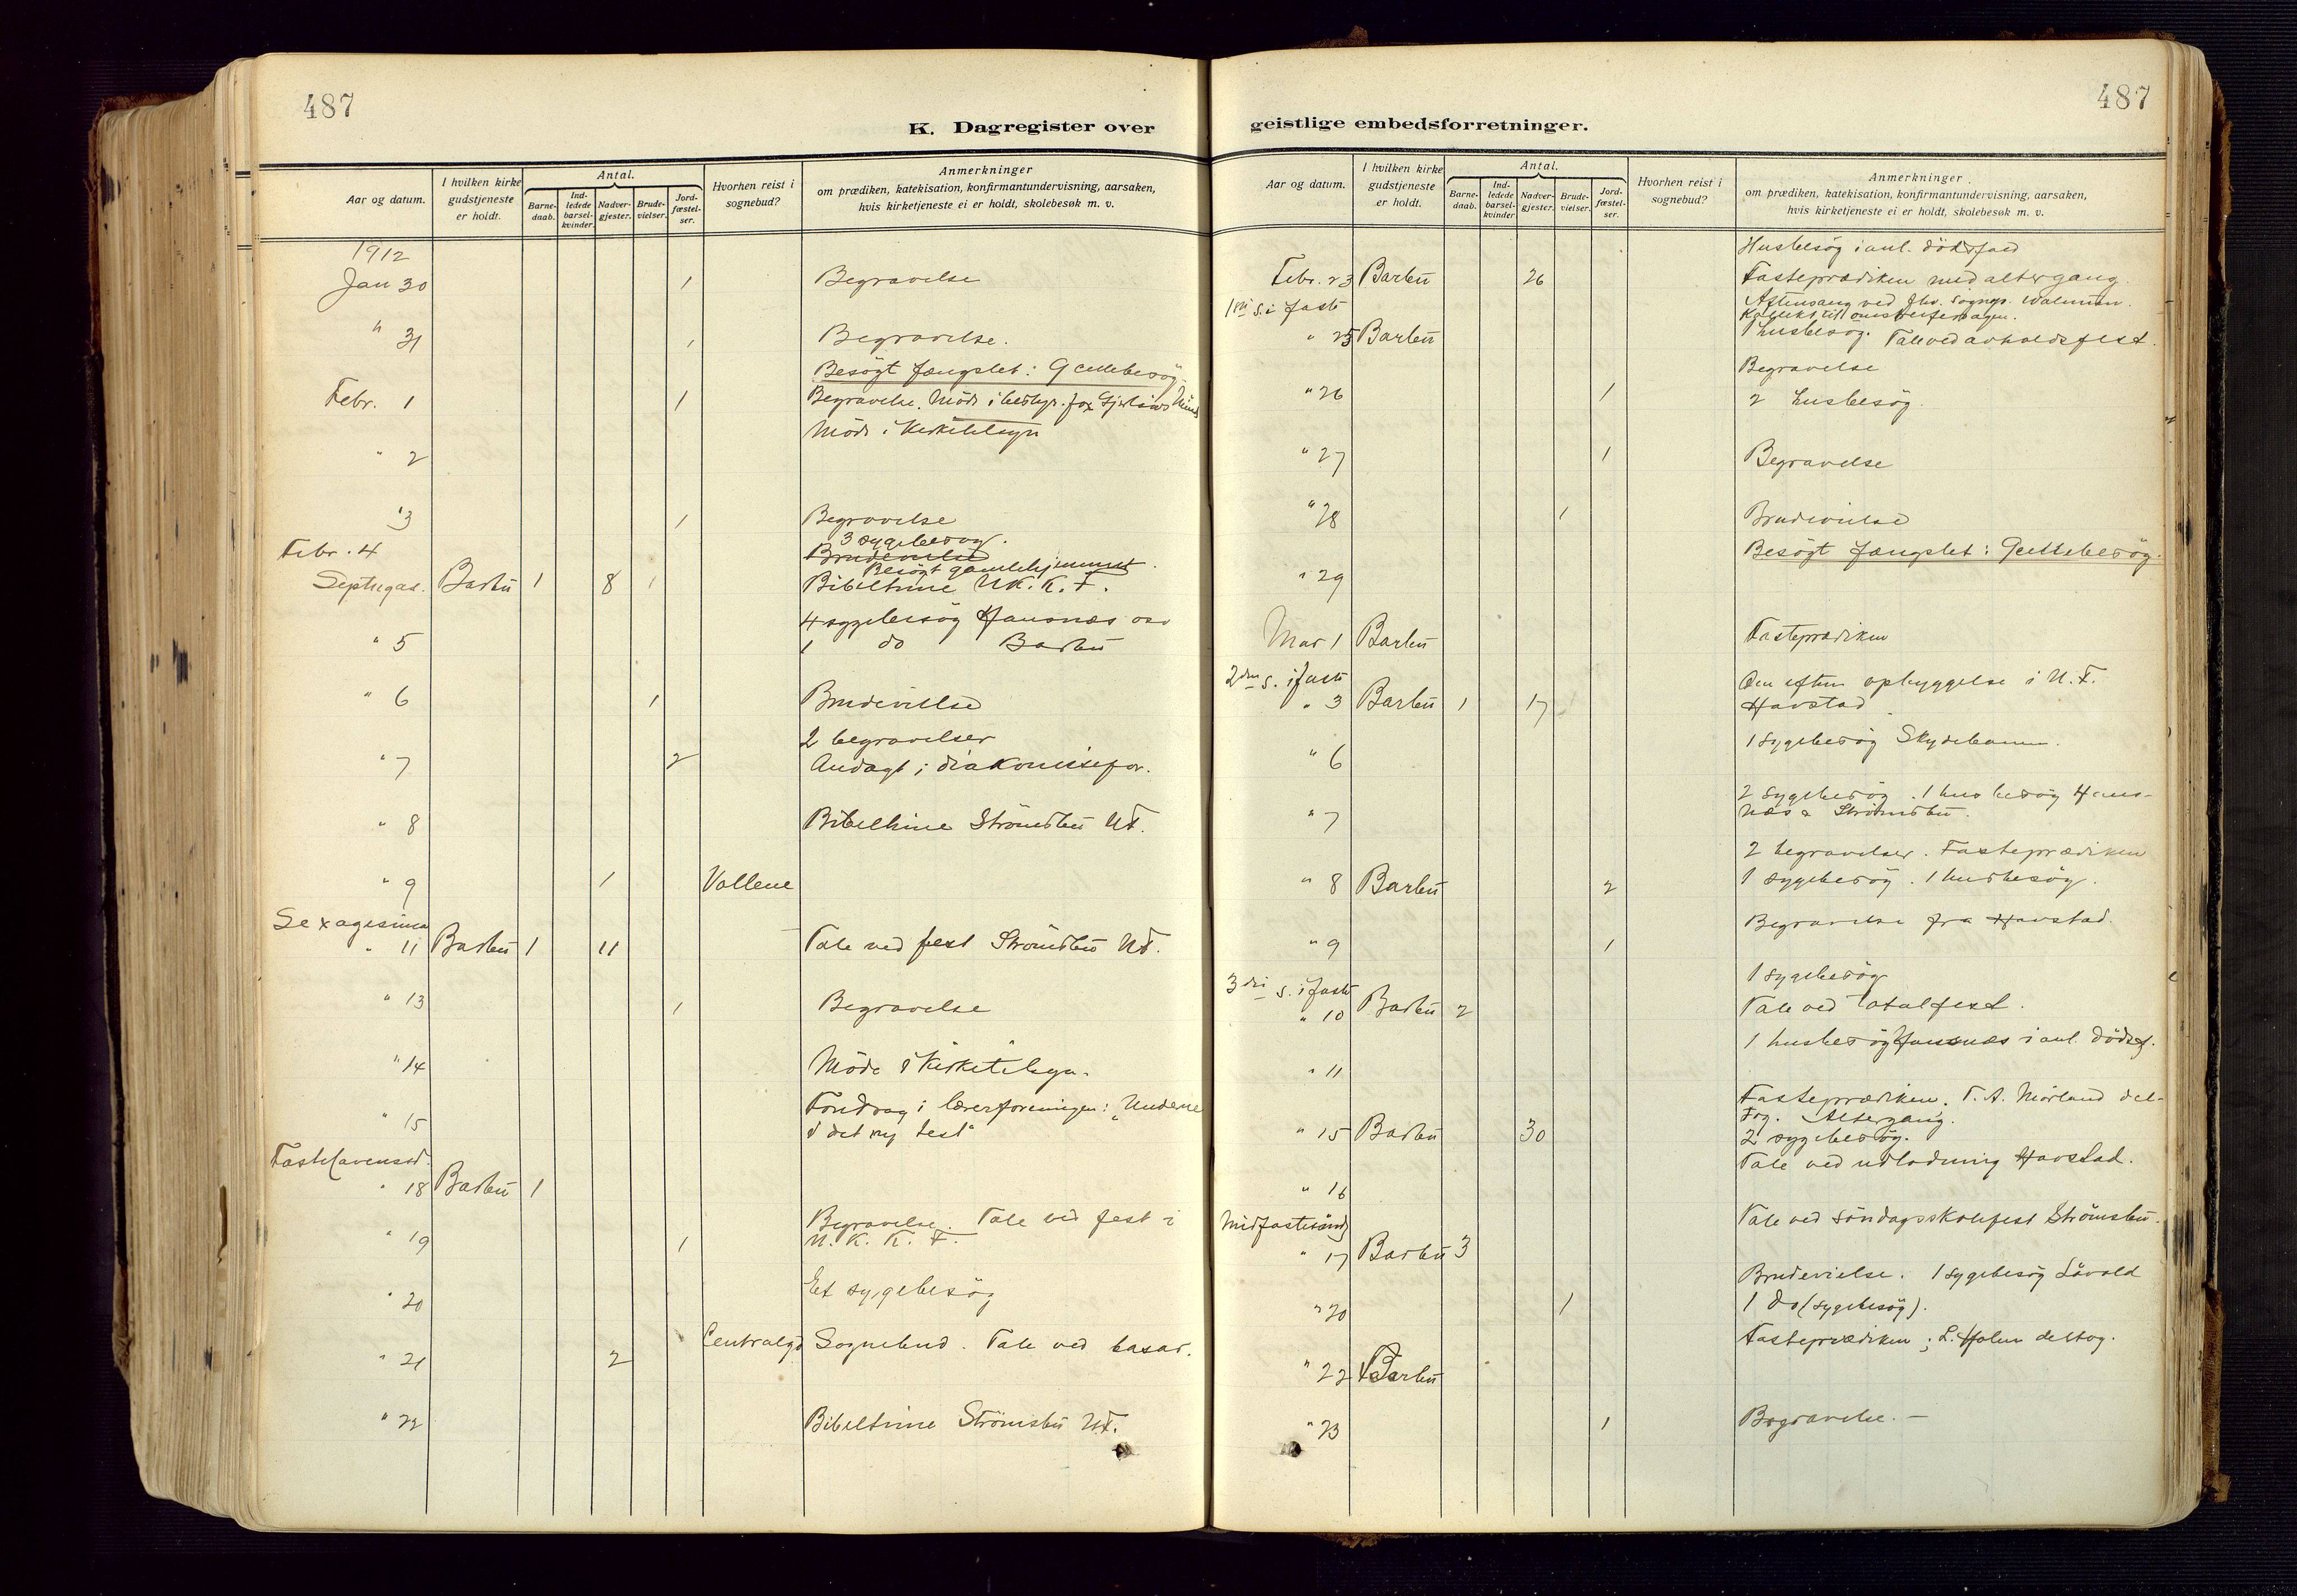 487
K. Dagregister over
Aar og datum.
I hvilken kirke gudstjeneste er holdt.
Antal.
Barne-daab.
Ind-ledede barsel-kvinder.
Nadver-gjester.
Brude-vielser.
Jord-fæstel-ser.
Hvorhen reist i sognebud?
Anmerkninger
om prædiken, katekisation, konfirmantundervisning, aarsaken,
hvis kirketjeneste ei er holdt, skolebesøk m. v.
1912
Jan 30 1 Begravelse
" 31 1 Begravelse.
Besögt fængslet: 9 cellebesög.
Febr. 1 1 Begravelse. Möde i bestyr. for
Möde i Kirketilsyn
" 2
" 3 1 Begravelse
3 sygebesög.
Febr. 4 Brudevielse
Besögt gamlehjemmet.
Septuages. Barbu 1 8 1 Bibeltime U.K.K.F.
4 sygebesög Hausnæs
" 5 1 do Barbu
" 6 1 Brudevielse
2 begravelser
" 7 2 Andagt i diakonissefor.
" 8 Bibeltime Strömsbu U.F.
" 9 1 Vollene
Sexagesima
" 11 Barbu 1 11 Tale ved fest Strömsbu U.F.
" 13 1 Begravelse
" 14 Möde i Kirketilsyn.
" 15 Foredrag i lærerforeningen: "Underne
i det ny test"
Fastelavenssd.
" 18 Barbu 1
Begravelse. Tale ved fest i
" 19 1 U. K. K. F.
" 20 Et sygebesög
" 21 2 Centralgd Sognebud. Tale ved basar.
" 22 Bibeltime Strömsbu U.F.
487
geistlige embedsforretninger.
Aar og datum.
I hvilken kirke gudstjeneste er holdt.
Antal.
Barne-daab.
Ind-ledede barsel-kvinder
Nadver-gjester.
Brude-vielser.
Jord-fæstel-ser.
Hvorhen reist i sognebud?
Anmerkninger
om prædiken, katekisation, konfirmantundervisning, aarsaken,
hvis kirketjeneste ei er holdt, skolebesøk m. v.
Husbesög i anl. dödsfald
Febr. 23 Barbu 26 Fasteprædiken med altergang.
1ste s. i faste Aftensang ved fhv. Sognep. Walnum.
" 25 Barbu 1 husbesög. Tale ved avholdsfest.
Begravelse
" 26 1 2 husbesög.
" 27 1 Begravelse
" 28 1 Brudevielse
Besögt fængslet: 9 cellebesög.
" 29
Mar 1 Barbu Fasteprædiken
2den s. i faste Om aften opbyggelse i U.F.
" 3 Barbu 1 17 Havstad
" 6 1 sygebesög Skydebanen.
2 sygebesög. 1 husbesög Haus-
" 7 næs & Strömsbu.
2 begravelser. Fasteprædiken
" 8 Barbu 2 1 sygebesög. 1 husbesög.
" 9 1 Begravelse fra Havstad.
3die s. i faste 1 sygebesög
" 10 Barbu 2 Tale ved totalfest.
" 11 1 husbesög Hausnæs i anl. dödsf.
Fasteprædiken. T. A. Mörland del-
tog. Altergang.
" 15 Barbu 30 2 sygebesög.
" 16 Tale ved udlodning Havstad.
Midfastesönd.
" 17 Barbu 3 Tale ved söndagsskolefest Strömsbu.
Brudevielse. 1 sygebesög Lövold
" 20 1 1 do (sygebesög).
" 22 Barbu Fasteprædiken; L. Holm deltog.
" 23 1 Begravelse. —